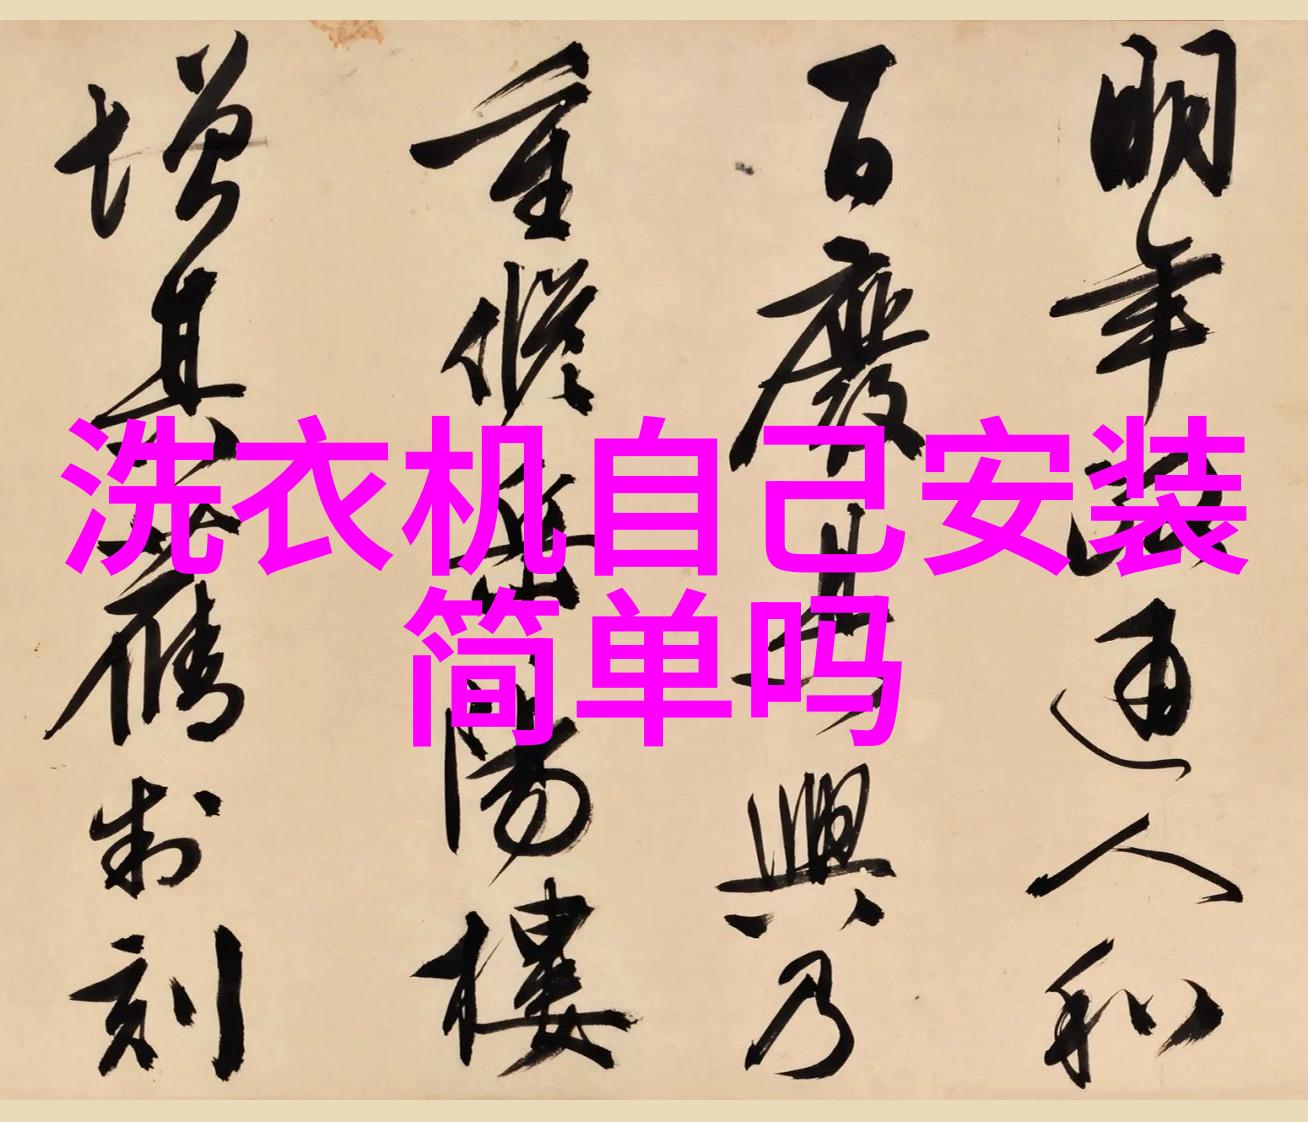 明年政通人和
百廢具興乃
重修岳陽樓
增其舊制刻
洗衣机自己安装
简单吗